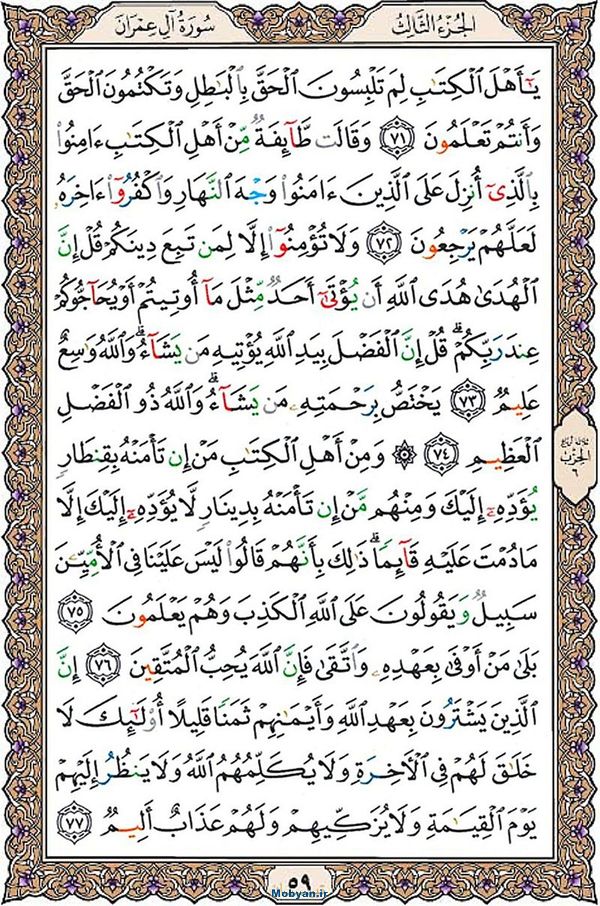 سُورَةُ آلِ عِمۡرَانَ
الجُزءُ الثَّالِثُ
يَـٰٓأَهۡلَ ٱلۡكِتَـٰبِ لِمَ تَلۡبِسُونَ ٱلۡحَقَّ بِٱلۡبَـٰطِلِ وَتَكۡتُمُونَ ٱلۡحَقَّ
وَأَنتُمۡ تَعۡلَمُونَ ﴿٧١﴾ وَقَالَت طَّآئِفَةٌ مِّنۡ أَهۡلِ ٱلۡكِتَـٰبِ ءَامِنُوا۟
بِٱلَّذِىٓ أُنزِلَ عَلَى ٱلَّذِينَ ءَامَنُوا۟ وَجۡهَ ٱلنَّهَارِ وَٱكۡفُرُوٓا۟ ءَاخِرَهُۥ
لَعَلَّهُمۡ يَرۡجِعُونَ ﴿٧٢﴾ وَلَا تُؤۡمِنُوٓا۟ إِلَّا لِمَن تَبِعَ دِينَكُمۡ قُلۡ إِنَّ
ٱلۡهُدَىٰ هُدَى ٱللَّهِ أَن يُؤۡتَىٰٓ أَحَدٌ مِّثۡلَ مَآ أُوتِيتُمۡ أَوۡ يُحَآجُّوكُمۡ
عِندَ رَبِّكُمۡۗ قُلۡ إِنَّ ٱلۡفَضۡلَ بِيَدِ ٱللَّهِ يُؤۡتِيهِ مَن يَشَآءُۗ وَٱللَّهُ وَٰسِعٌ
عَلِيمٌ ﴿٧٣﴾ يَخۡتَصُّ بِرَحۡمَتِهِۦ مَن يَشَآءُۗ وَٱللَّهُ ذُو ٱلۡفَضۡلِ
ٱلۡعَظِيمِ ﴿٧٤﴾ ۞ وَمِنۡ أَهۡلِ ٱلۡكِتَـٰبِ مَنۡ إِن تَأۡمَنۡهُ بِقِنطَارٍ
يُؤَدِّهِۦٓ إِلَيۡكَ وَمِنۡهُم مَّنۡ إِن تَأۡمَنۡهُ بِدِينَارٍ لَّا يُؤَدِّهِۦٓ إِلَيۡكَ إِلَّا
مَا دُمۡتَ عَلَيۡهِ قَآئِمًاۗ ذَٰلِكَ بِأَنَّهُمۡ قَالُوا۟ لَيۡسَ عَلَيۡنَا فِى ٱلۡأُمِّيِّـۧنَ
سَبِيلٌ وَيَقُولُونَ عَلَى ٱللَّهِ ٱلۡكَذِبَ وَهُمۡ يَعۡلَمُونَ ﴿٧٥﴾
بَلَىٰ مَنۡ أَوۡفَىٰ بِعَهۡدِهِۦ وَٱتَّقَىٰ فَإِنَّ ٱللَّهَ يُحِبُّ ٱلۡمُتَّقِينَ ﴿٧٦﴾ إِنَّ
ٱلَّذِينَ يَشۡتَرُونَ بِعَهۡدِ ٱللَّهِ وَأَيۡمَـٰنِهِمۡ ثَمَنًا قَلِيلًا أُو۟لَـٰٓئِكَ لَا
خَلَـٰقَ لَهُمۡ فِى ٱلۡأَخِرَةِ وَلَا يُكَلِّمُهُمُ ٱللَّهُ وَلَا يَنظُرُ إِلَيۡهِمۡ
يَوۡمَ ٱلۡقِيَـٰمَةِ وَلَا يُزَكِّيهِمۡ وَلَهُمۡ عَذَابٌ أَلِيمٌ ﴿٧٧﴾
ثلاثة أرباع
الحزب
٦
٥٩
Mobyan.ir